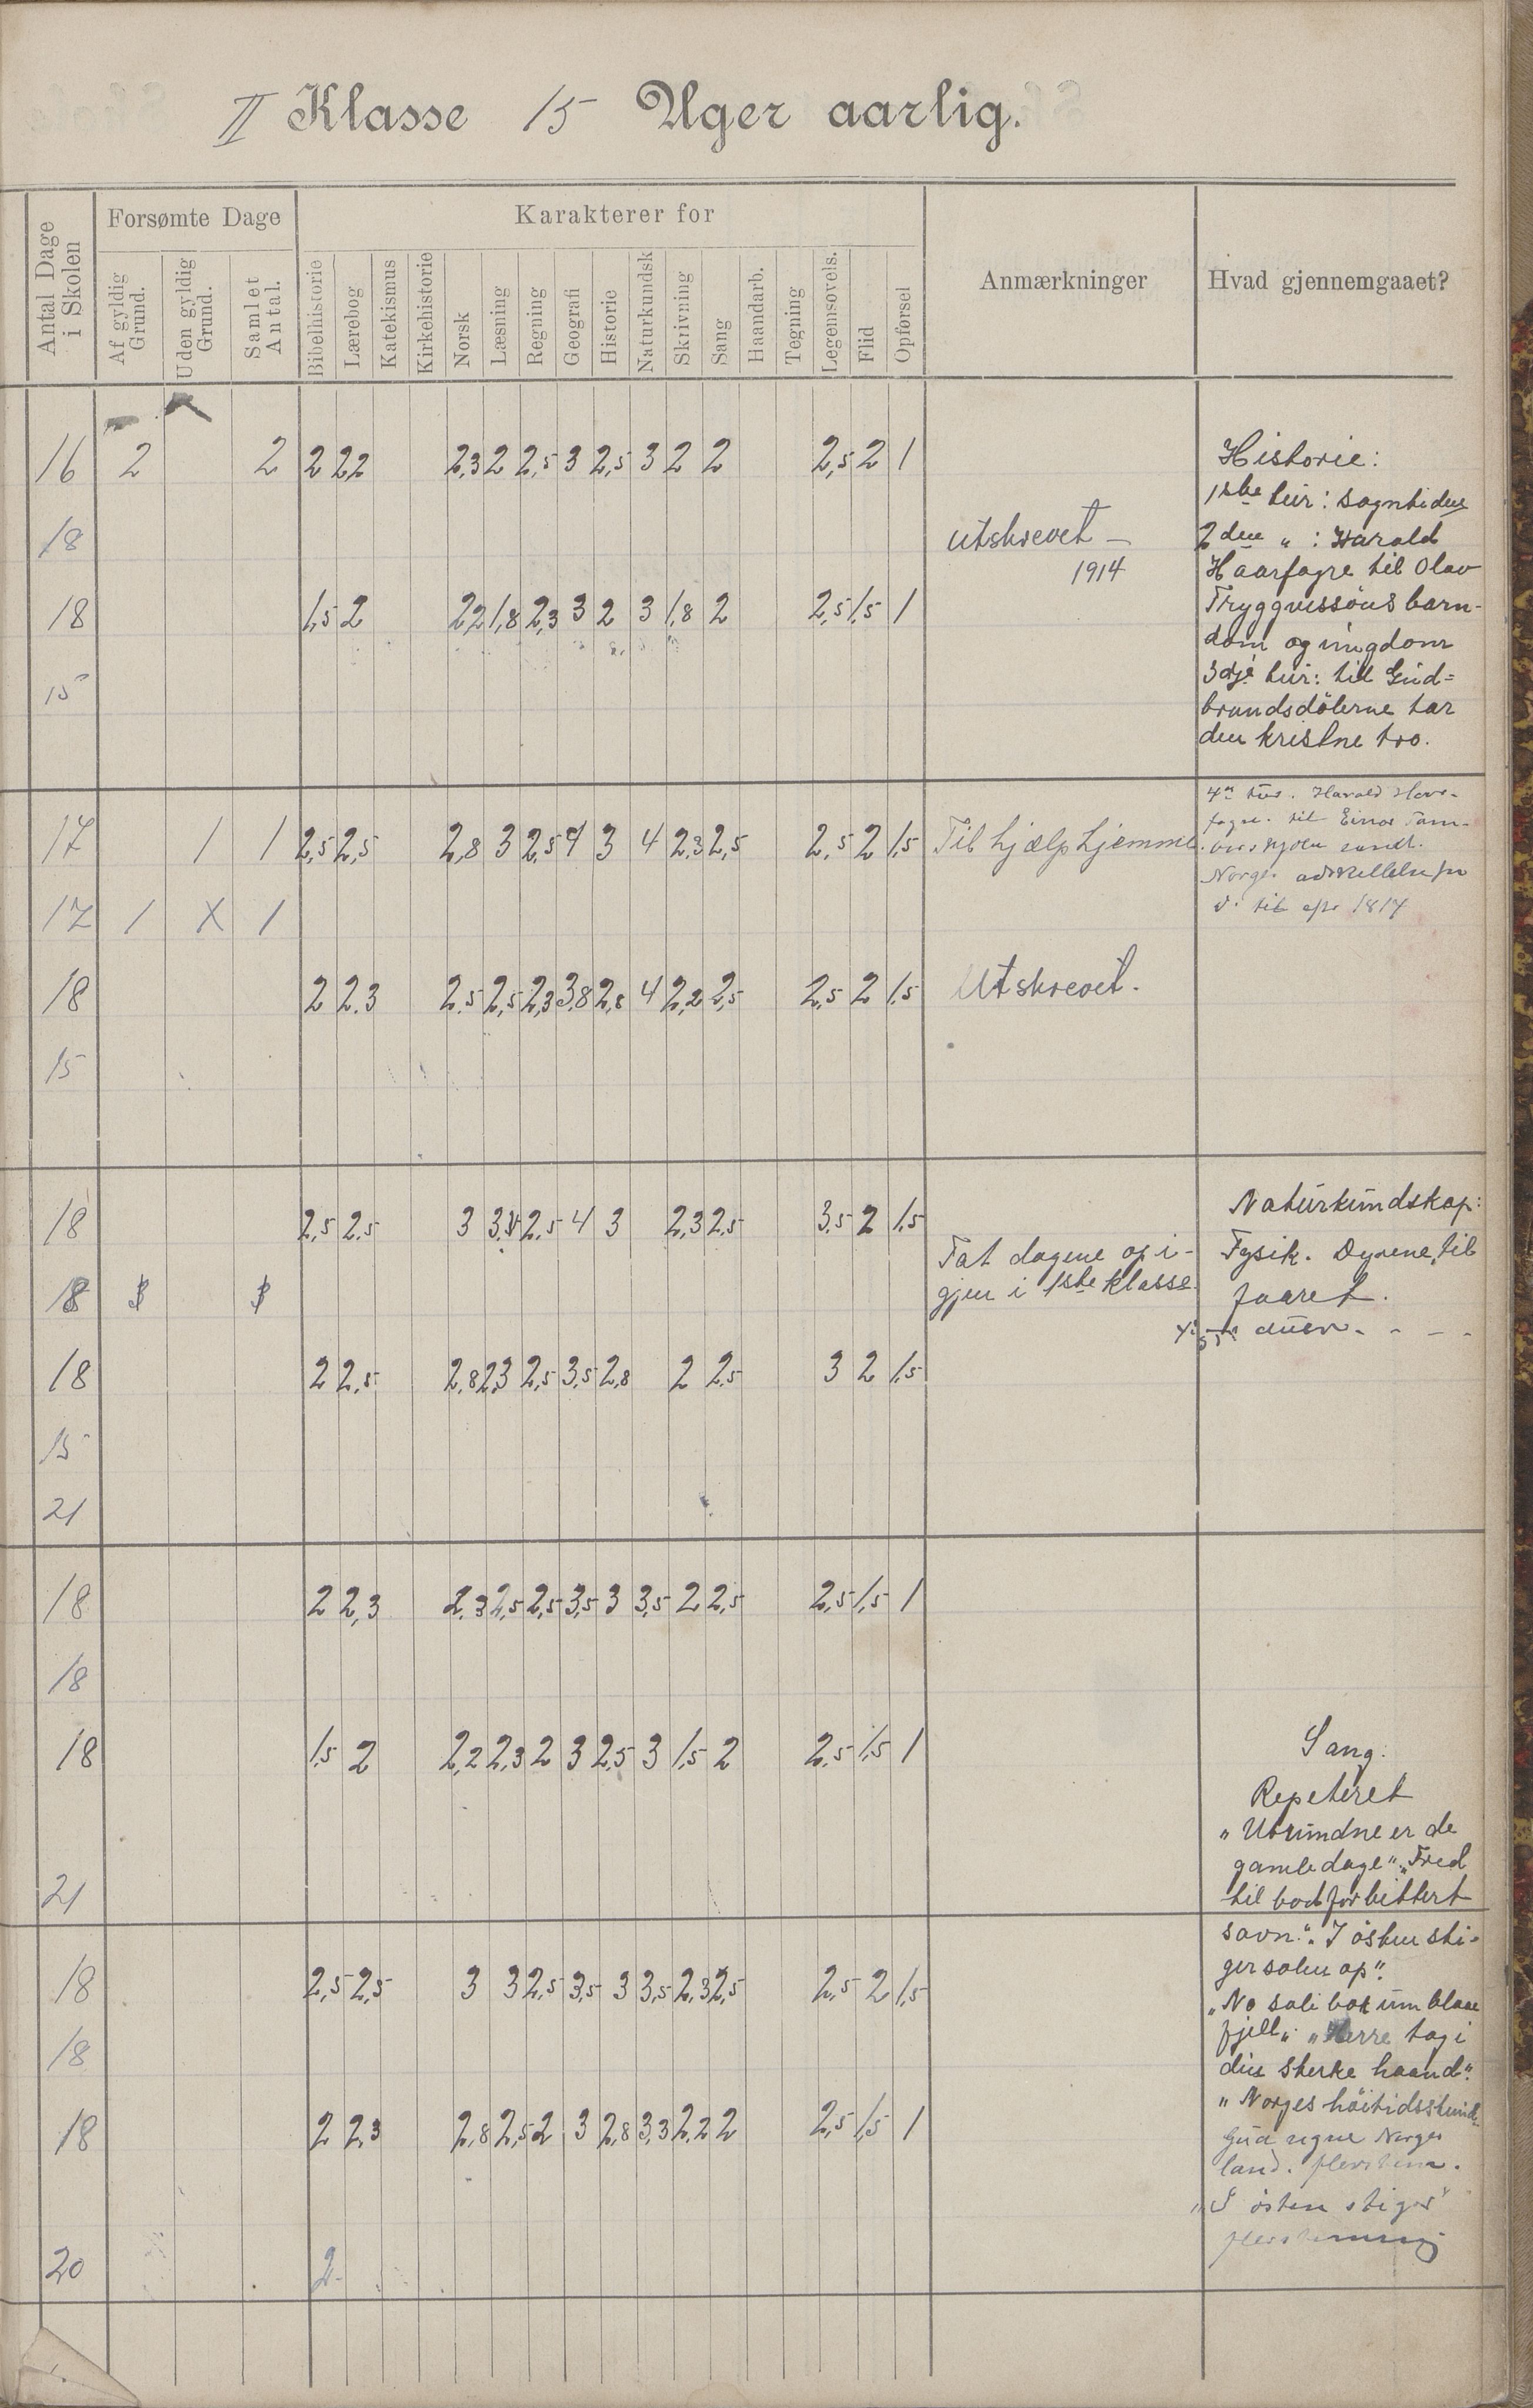 II Klasse 15 Uger aarlig.
Antal Dage i Skolen
Forsømte Dage
Af gyldig Grund.
Uden gyldig Grund.
Samlet Antal.
Karakterer for
Bibelhistorie Lærebog Katekismus Kirkehistorie Norsk Læsning Regning Geografi Historie Naturkundsk Skrivning Sang Haandarb. Tegning Legemsøvels. Flid Opførsel
Anmærkninger
Hvad gjennemgaaet?
16 2 2 2 2,2 2,3 2 2,5 3 2,5 3 2 2 2,5 2 1
18 utskrevet –
1914
18 1,5 2 2,2 1,8 2,3 3 2 3 1,8 2 2,5 1,5 1
15
17 1 1 2,5 2,5 2,8 3 2,5 4 3 4 2,3 2,5 2,5 2 1,5 Til hjælp hjemme.
17 1 X 1
18 2 2,3 2,5 2,5 2,3 3,8 2,8 4 2,2 2,5 2,5 2 1,5 Utskrevet.
15
18 2,5 2,5 3 2,5 4 3 2,3 2,5 3,5 2 1,5
Tat dagene op i-
gjen i 1ste klasse.
18
18 2 2,5 2,8 2,3 2,5 3,5 2,8 2 2,5 3 2 1,5
15
21
18 2 2,3 2,3 2,5 2,5 3,5 3 3,5 2 2,5 2,5 1,5 1
18
18 1,5 2 2,2 2,3 2 3 2,5 3 1,5 2 2,5 1,5 1
21
18 2,5 2,5 3 3 2,5 3,5 3 3,5 2,3 2,5 2,5 2 1,5
18
18 2 2,3 2,8 2,5 2 3 2,8 3,3 2,2 2 2,5 1,5 1
20 2
Historie:
1ste tur: Sagntiden
2den " : Harald
Haarfagre til Olav
Tryggvessöns barn-
dom og ungdom
3dje tur: til Gud=
brandsdölerne tar
den kristne tro.
4de tur. Harald Haar-
fagre. til Einar Tam-
Norges adskillelse fra
til 1814
Naturkundskap:
Fysik. Dyrene til
faaret.
duen - - -
Sang:
Repeteret
"Utrundne er de
gamle dage". "Fred
til bod for bittert
savn". "I östen sti-
ger solen op".
"No soli bak um blaae
fjell". "Herre tag i
din sterke haand".
"Norges höitidsstund"
Gud signe Norges
land. flerstem.
"I östen stiger"
flerstemmig